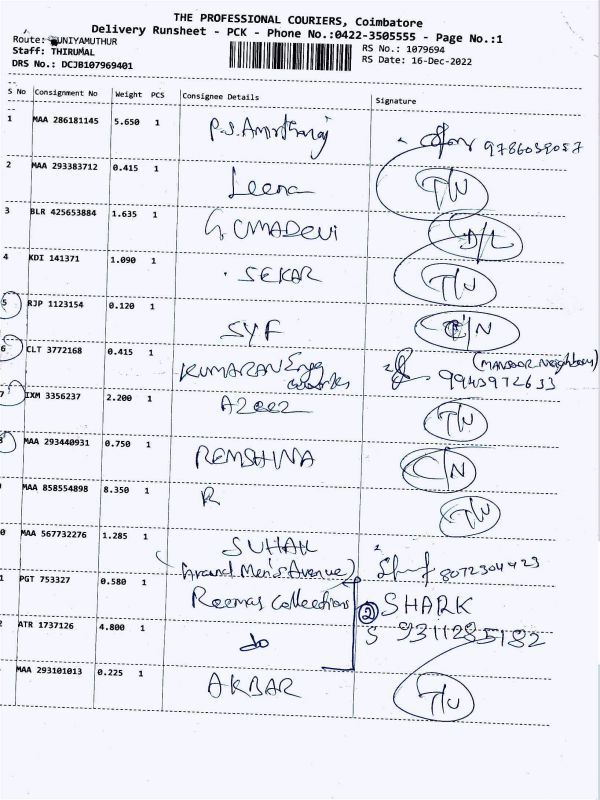 THE PROFESSIONAL COURIERS, Coimbatore
Delivery Runsheet - PCK - Phone No.:0422-3505555 - Page No.:1
Route: UNIYAMUTHUR
Staff: THIRUMAL
DRS No.: DCJB107969401
RS No.: 1079694
RS Date: 16-Dec-2022
S No Consignment No Weight PCS Consignee Details Signature
1 MAA 286181145 5.650 1 P.S. Amirthraj
2 MAA 293383712 0.415 1 Leena T/U
3 BLR 425653884 1.635 1 G UMADEVI D/L
4 KDI 141371 1.090 1 SEKAR T/U
5 RJP 1123154 0.120 1 SYF C/N
6 CLT 3772168 0.415 1 KUMARAN Eng works (MANSOOR Neighbour)
7 IXM 3356237 2.200 1 AZEEZ T/U
8 MAA 293440931 0.750 1 C/N
MAA 858554898 8.350 1 R T/U
0 MAA 567732276 1.285 1 SUHAIL 8072304423
(Grand Men's Avenue)
1 PGT 753327 0.580 1 Reemas Collections 2 SHARK
2 ATR 1737126 4.800 1 do S 9311285182
MAA 293101013 0.225 1 AKBAR T/U